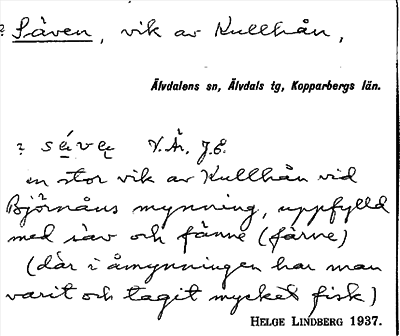 ? Säven, vik av Kullhån,
Älvdalens sn, Älvdals tg, Kopparbergs län.
? V. År, J.E.
en stor vik av Kullhån vid
Björnåns mynning, uppfylld
med säv och fänne (färne)
(där i åmynningen har man
varit och tagit mycket fisk)
HELGE LINDBERG 1937.